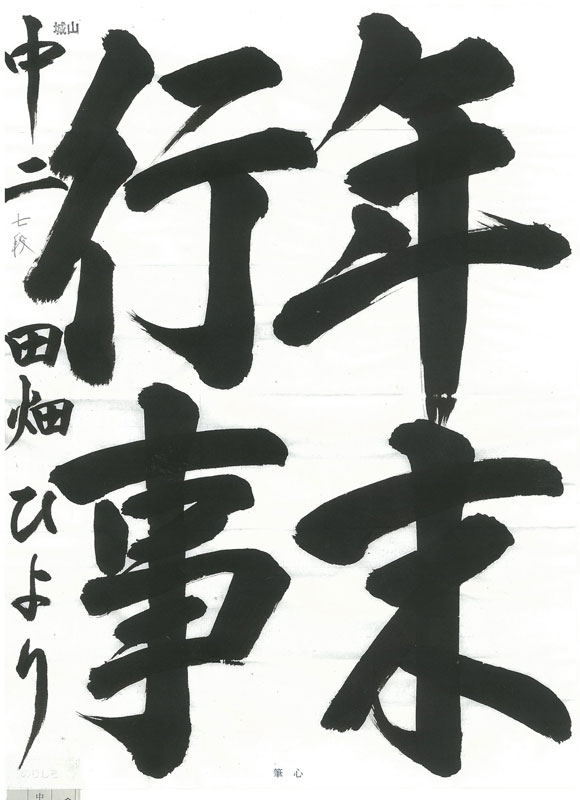 年末
行事
中二 田畑ひより
七段
城山
心筆
中